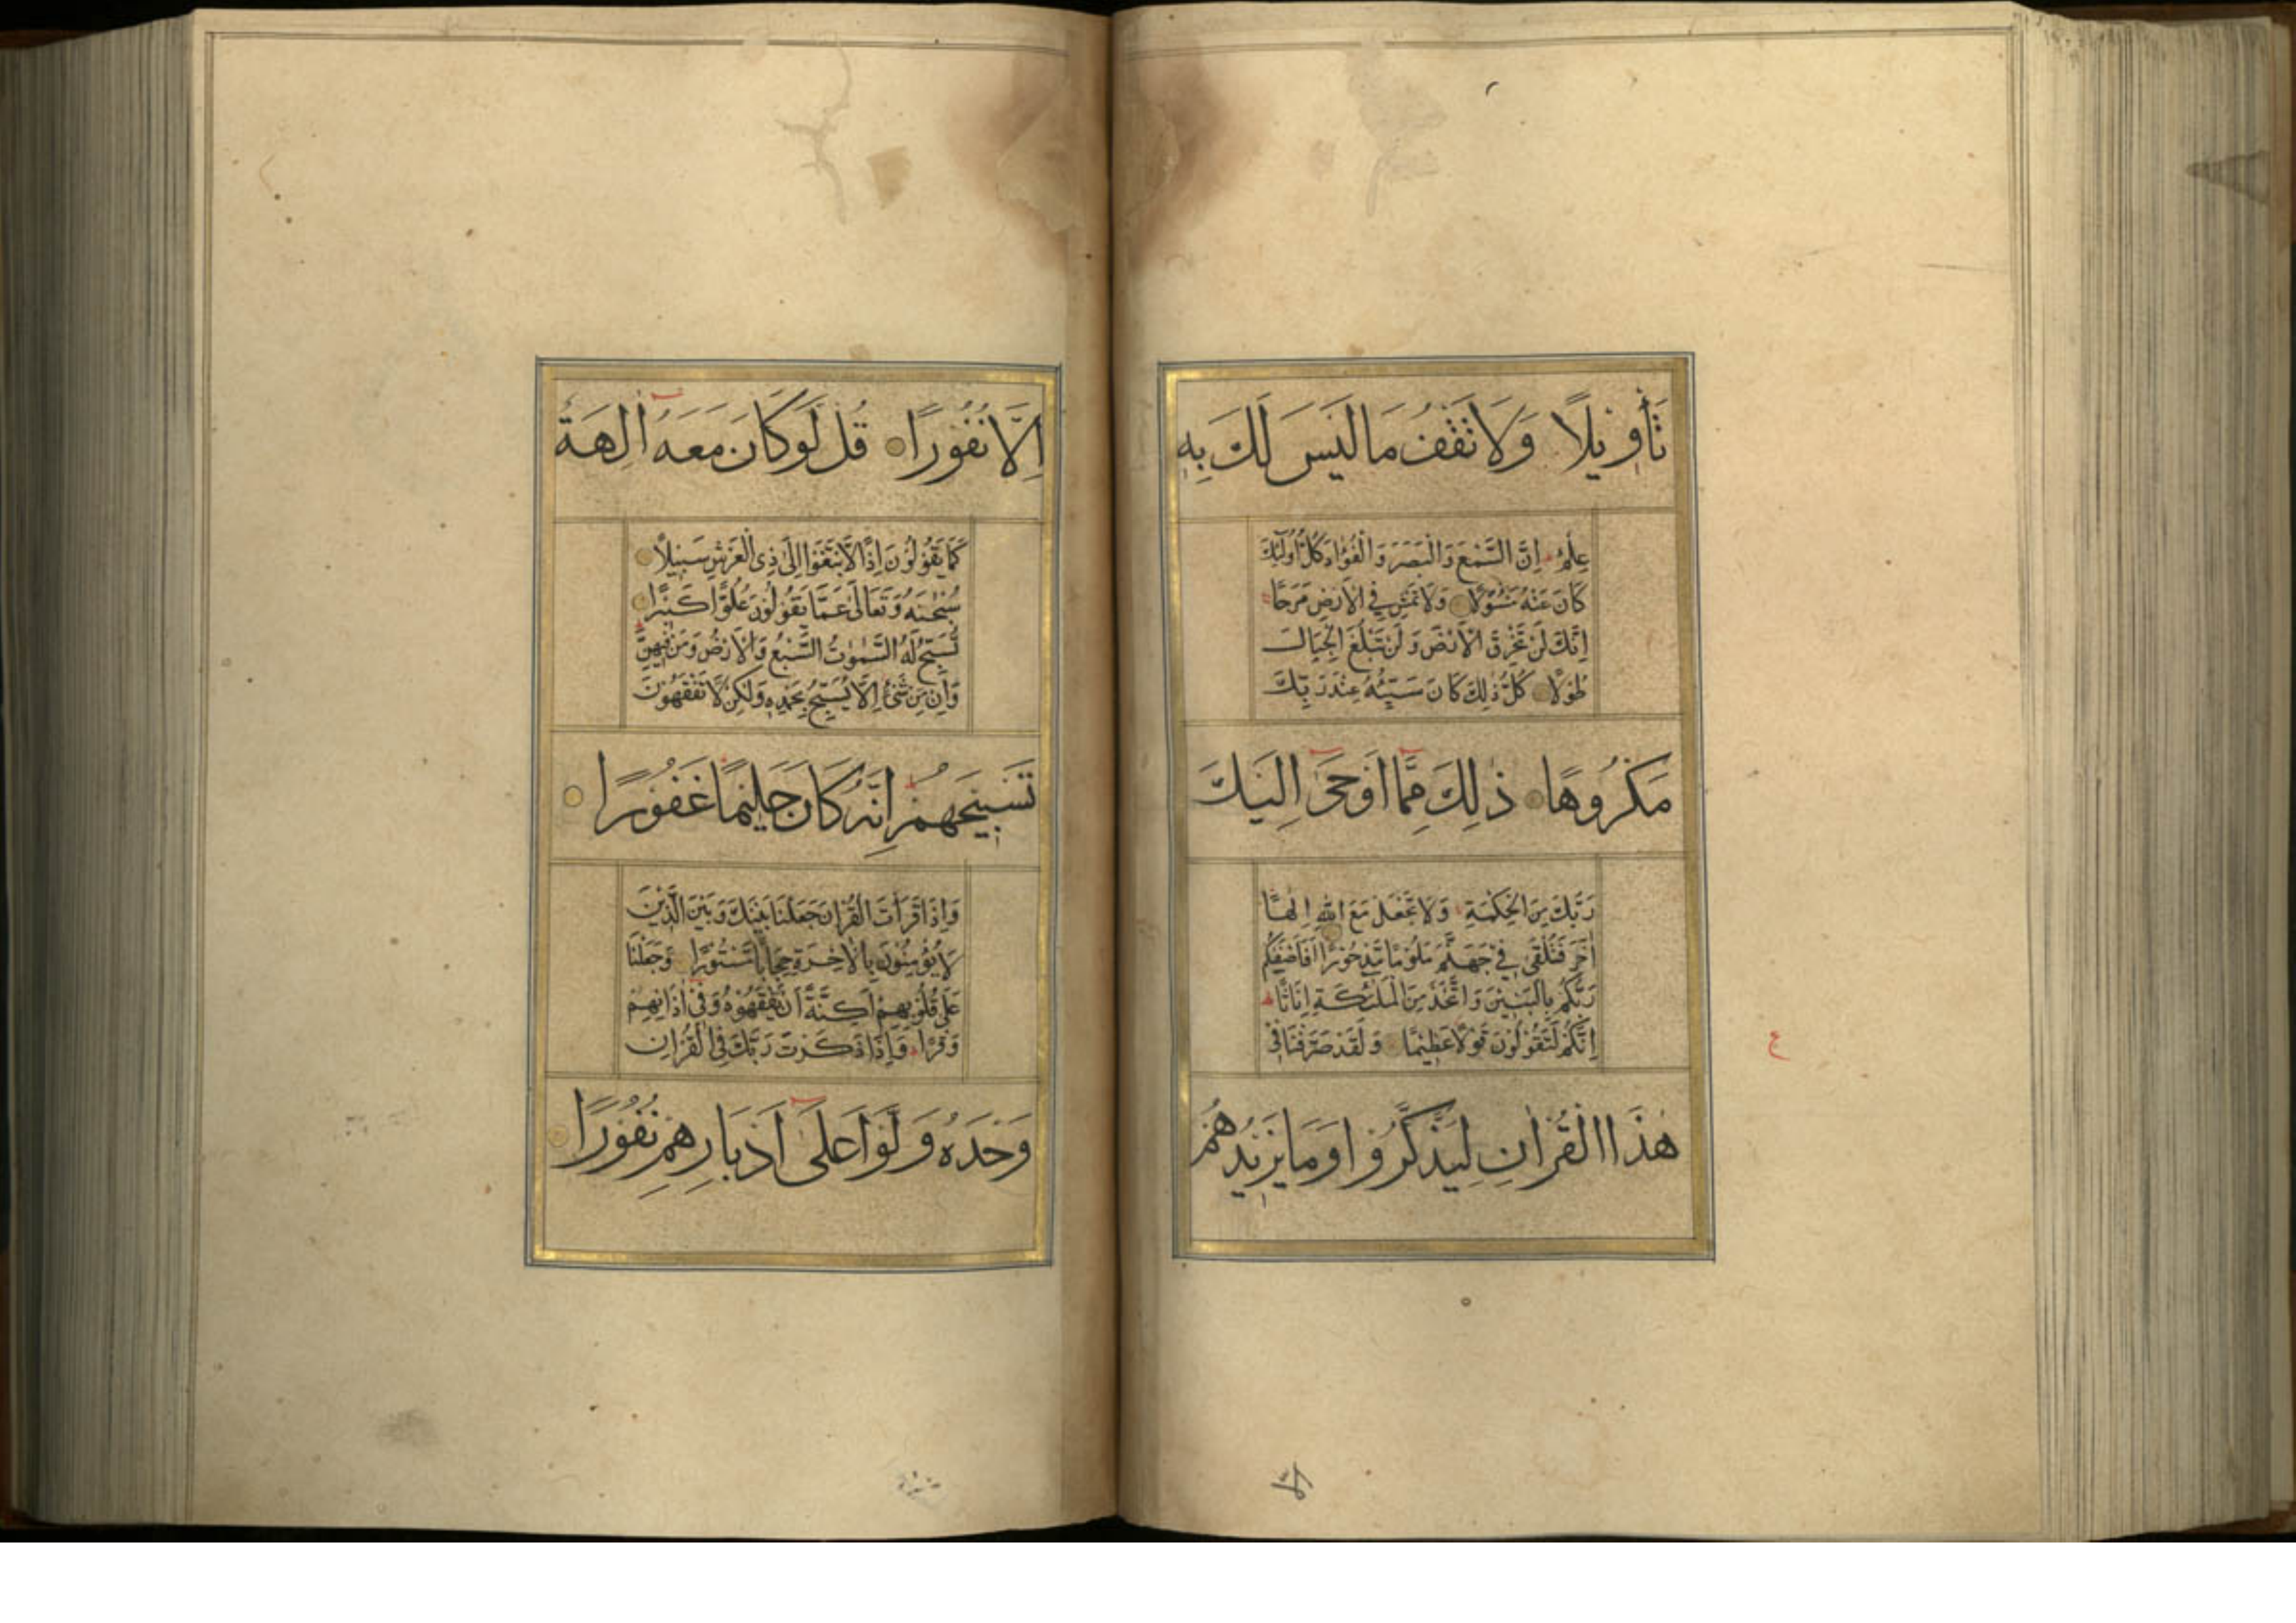 تَأْوِيلًا وَلَا تَقْفُ مَا لَيْسَ لَكَ بِهِ
عِلْمٌ اِنَّ السَّمْعَ وَالْبَصَرَ وَالْفُؤَادَ كُلُّ اُولٰٓئِكَ
كَانَ عَنْهُ مَسْؤُلًا وَلَا تَمْشِ فِي الْاَرْضِ مَرَحًا
اِنَّكَ لَنْ تَخْرِقَ الْاَرْضَ وَلَنْ تَبْلُغَ الْجِبَالَ
طُولًا كُلُّ ذٰلِكَ كَانَ سَيِّئُهُ عِنْدَ رَبِّكَ
مَكْرُوهًا ذٰلِكَ مِمَّا اَوْحٰى اِلَيْكَ
رَبُّكَ مِنَ الْحِكْمَةِ وَلَا تَجْعَلْ مَعَ اللّٰهِ اِلٰهًا
اٰخَرَ فَتُلْقٰى فِي جَهَنَّمَ مَلُومًا مَدْحُورًا اَفَاَصْفٰيكُمْ
رَبُّكُمْ بِالْبَنِينَ وَاتَّخَذَ مِنَ الْمَلٰٓئِكَةِ اِنَاثًا
اِنَّكُمْ لَتَقُولُونَ قَوْلًا عَظِيمًا وَلَقَدْ صَرَّفْنَا فِي
هٰذَا الْقُرْاٰنِ لِيَذَّكَّرُوا وَمَا يَزِيدُهُمْ
ع
اِلَّا نُفُورًا قُلْ لَوْ كَانَ مَعَهُ اٰلِهَةٌ
كَمَا يَقُولُونَ اِذًا لَابْتَغَوْا اِلٰى ذِي الْعَرْشِ سَبِيلًا
سُبْحٰنَهُ وَتَعَالٰى عَمَّا يَقُولُونَ عُلُوًّا كَبِيرًا
تُسَبِّحُ لَهُ السَّمٰوٰتُ السَّبْعُ وَالْاَرْضُ وَمَنْ فِيهِنَّ
وَاِنْ مِنْ شَيْءٍ اِلَّا يُسَبِّحُ بِحَمْدِهِ وَلٰكِنْ لَا تَفْقَهُونَ
تَسْبِيحَهُمْ اِنَّهُ كَانَ حَلِيمًا غَفُورًا
وَاِذَا قَرَأْتَ الْقُرْاٰنَ جَعَلْنَا بَيْنَكَ وَبَيْنَ الَّذِينَ
لَا يُؤْمِنُونَ بِالْاٰخِرَةِ حِجَابًا مَسْتُورًا وَجَعَلْنَا
عَلٰى قُلُوبِهِمْ اَكِنَّةً اَنْ يَفْقَهُوهُ وَفِي اٰذَانِهِمْ
وَقْرًا وَاِذَا ذَكَرْتَ رَبَّكَ فِي الْقُرْاٰنِ
وَحْدَهُ وَلَّوْا عَلٰى اَدْبَارِهِمْ نُفُورًا